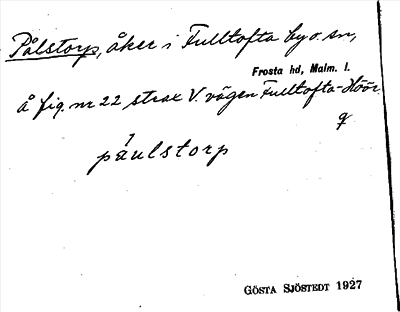 Pålstorp, åker i Fulltofta by o. sn,
Frosta hd, Malm. l.
å fig. nr 22 strax V. vägen Fulltofta-Höör.
påulstorp
GÖSTA SJÖSTEDT 1927